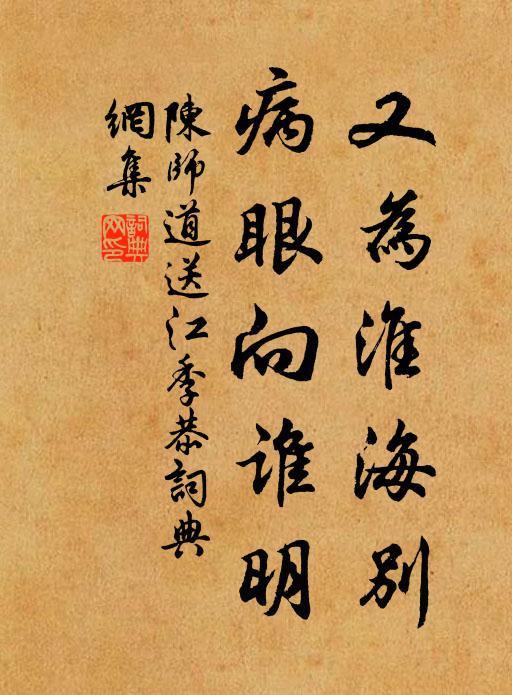 又為淮海別
病眼向誰明
陳師道送江季恭詞典
網集
詞典
网印